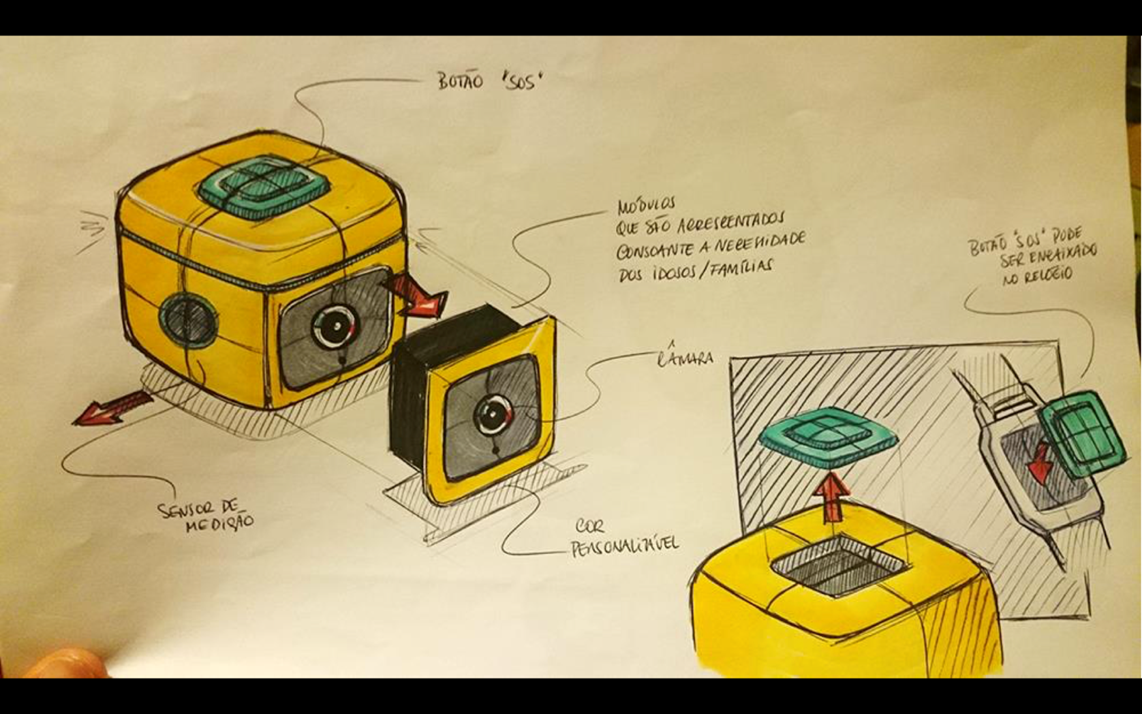 BOTÃO "SOS"
MÓDULOS
QUE SÃO ACRESCENTADOS
CONSOANTE A NECESSIDADE
DOS IDOSOS/FAMÍLIAS
BOTÃO "SOS" PODE
SER ENCAIXADO
NO RELÓGIO
CÂMARA
SENSOR DE
MEDIÇÃO
COR
PERSONALIZÁVEL